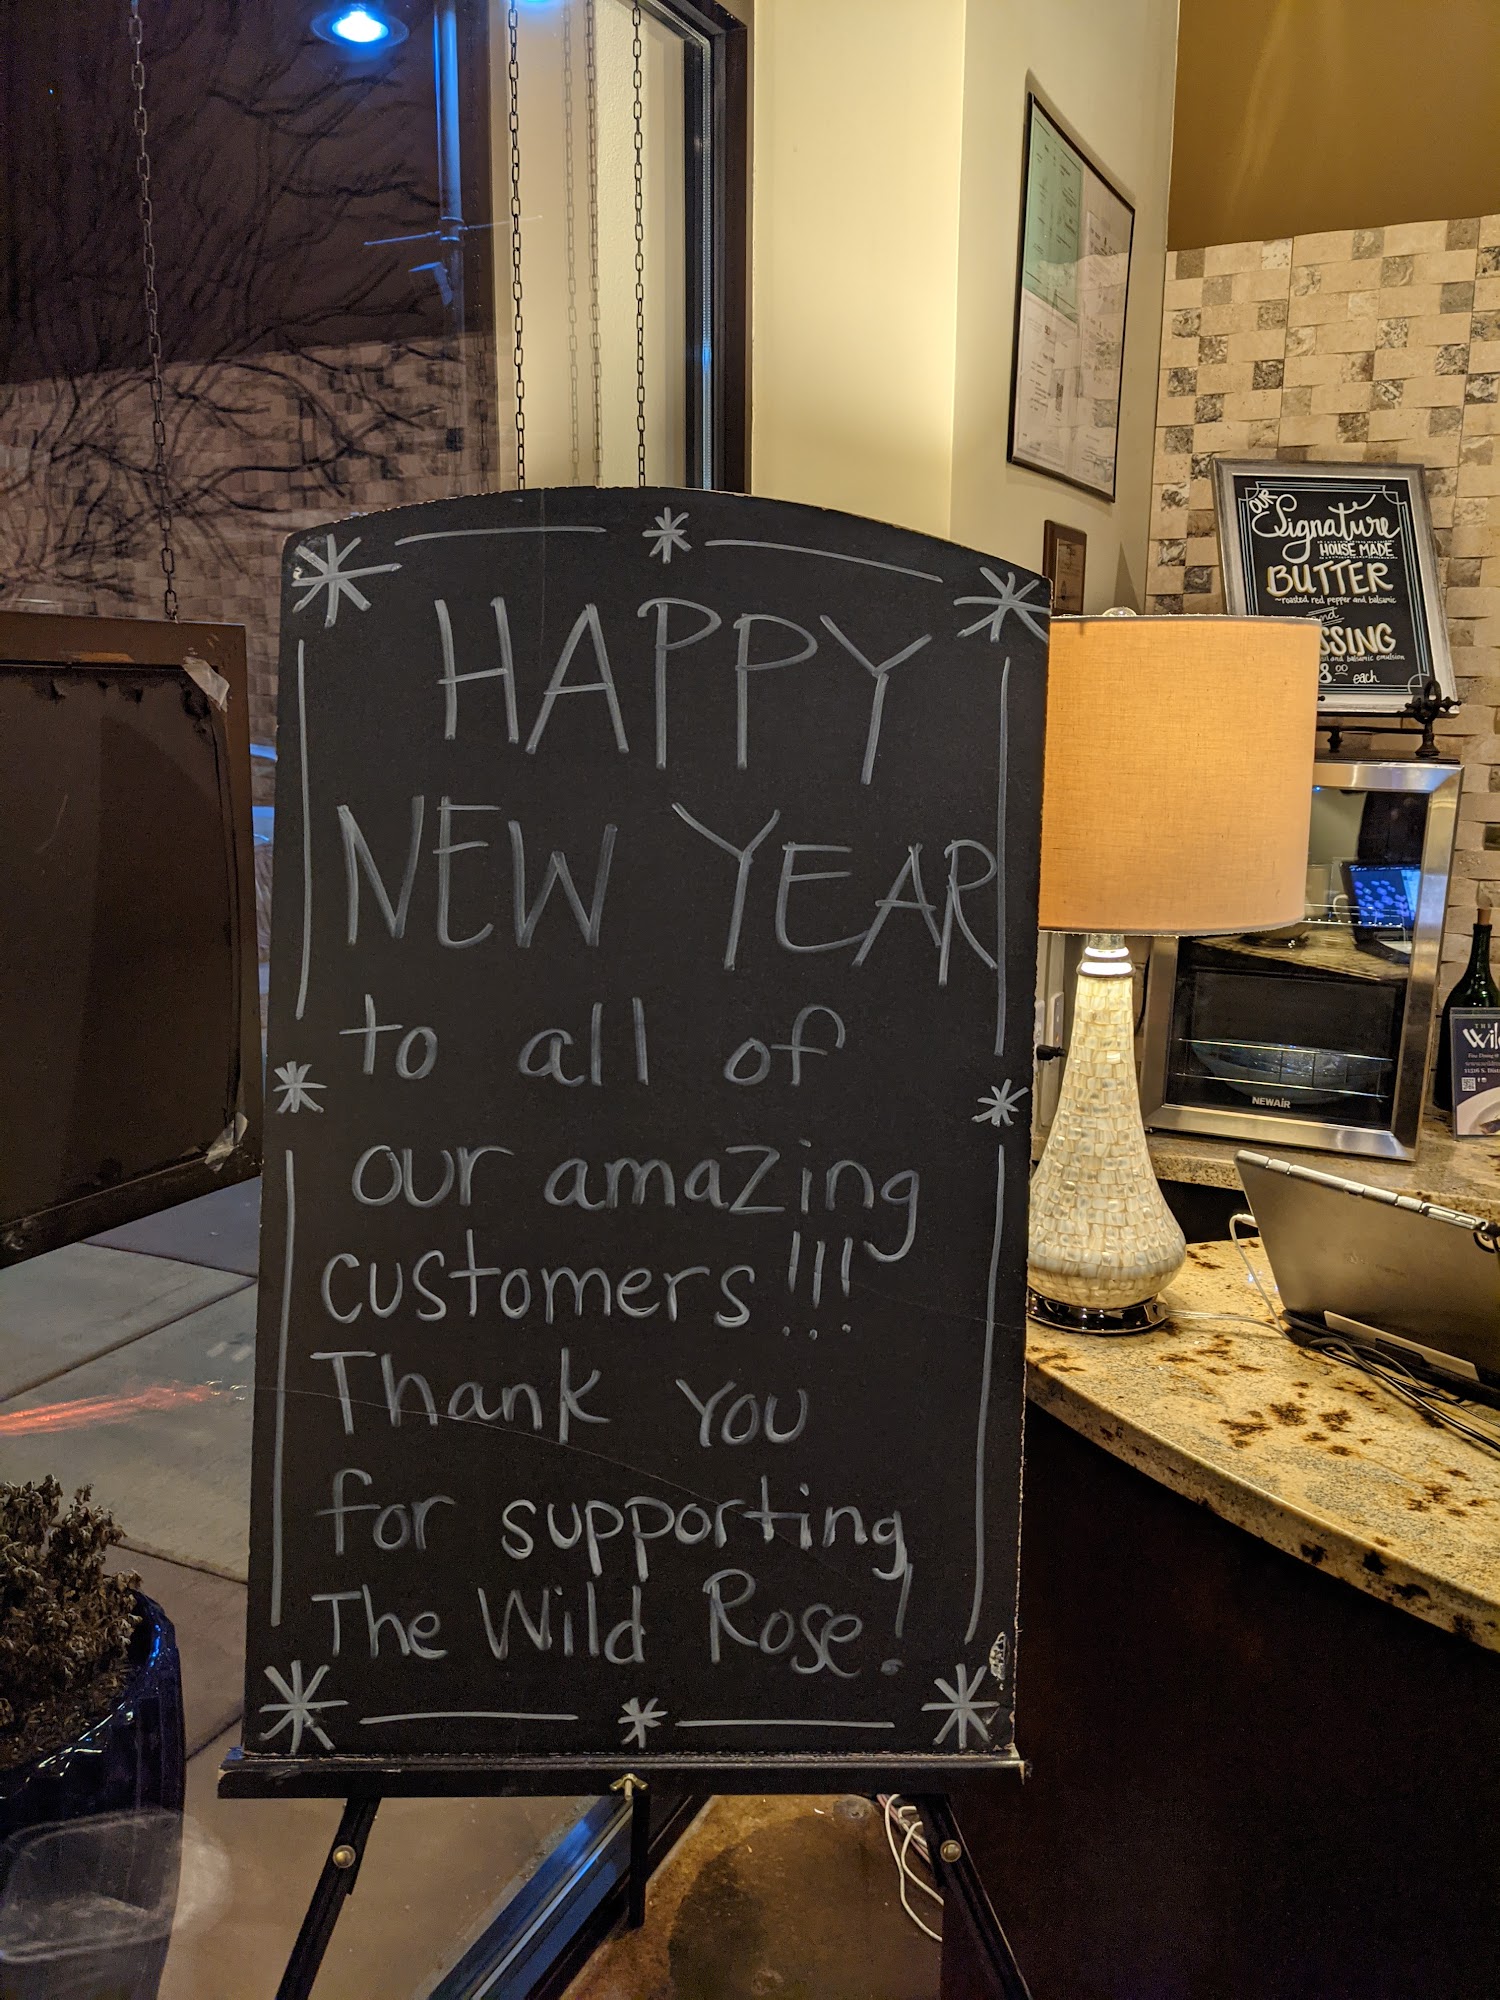 HAPPY
NEW YEAR
to all of
our amazing
customers!!!
Thank you
for supporting
The Wild Rose!
OUR
Signature
HOUSE MADE
BUTTER
~roasted red pepper and balsamic
and
SSING
and balsamic emulsion
8.00 each
NEWAIR
THE
Wil
Fine Dining